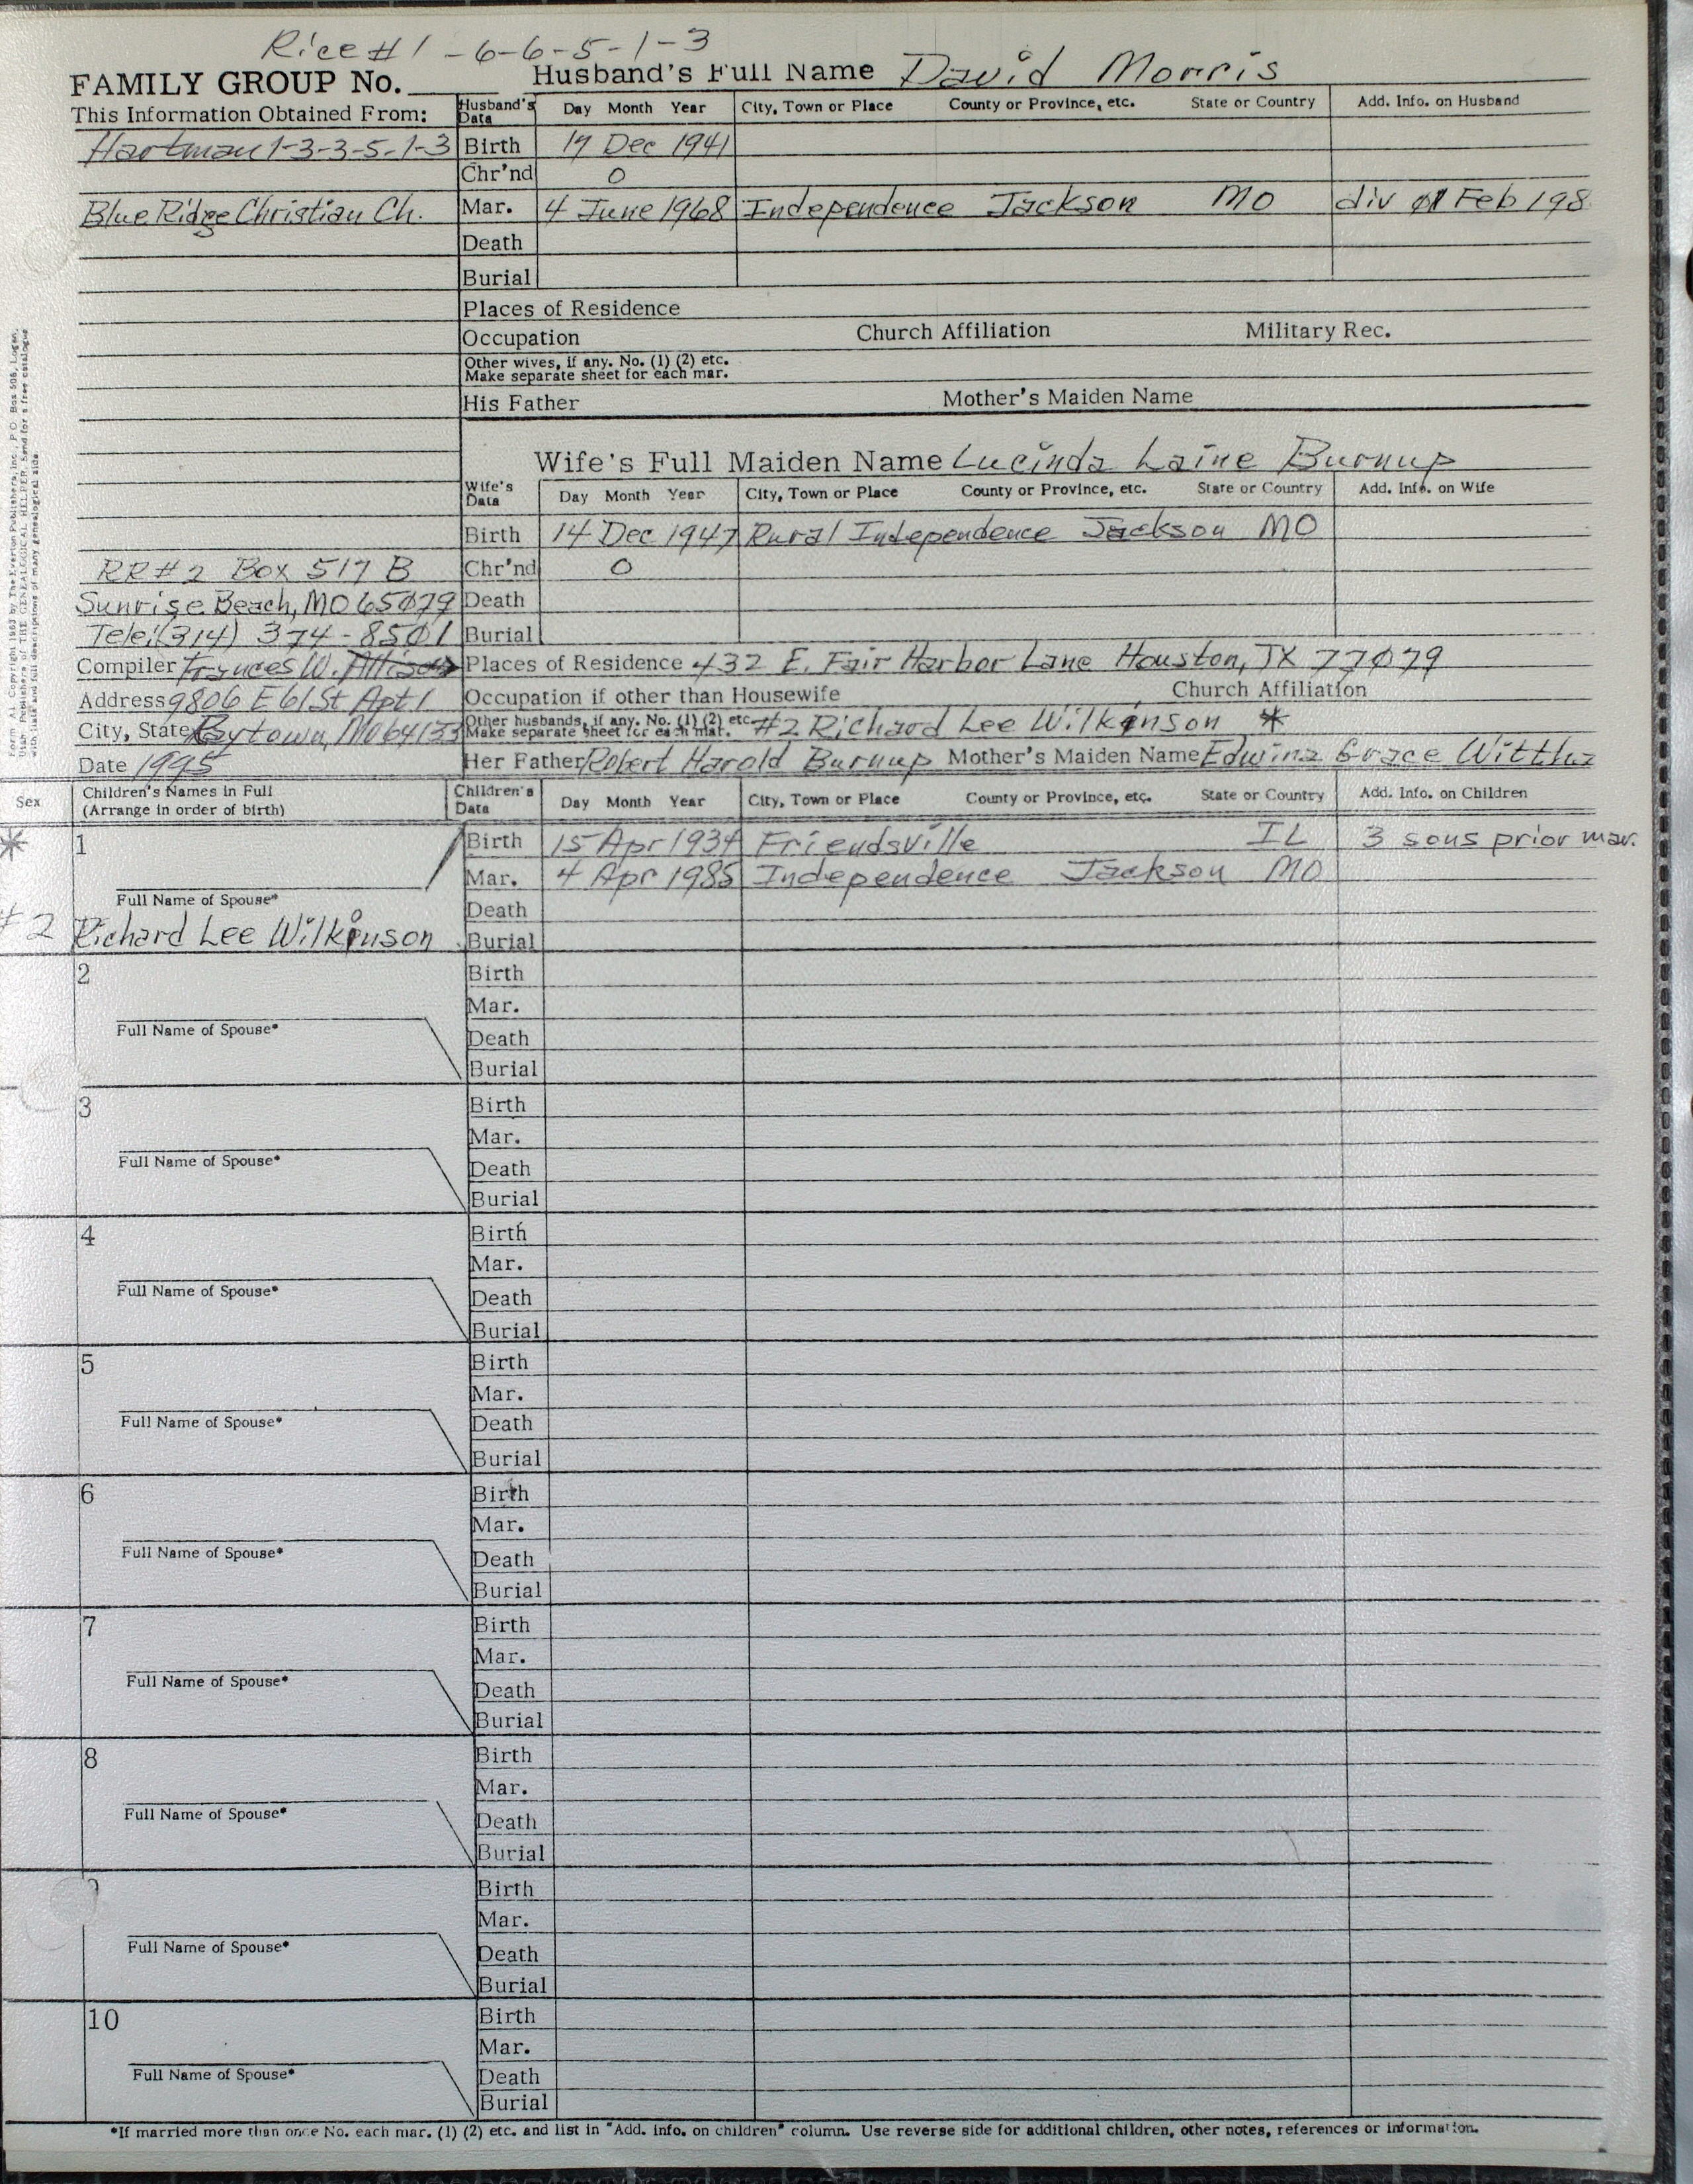 Rice #1-6-6-5-1-3
FAMILY GROUP No. Husband's Full Name David Morris
This Information Obtained From: Husband's Data Day Month Year City, Town or Place County or Province, etc. State or Country Add. Info. on Husband
Hartman 1-3-3-5-1-3 Birth Dec 1941
Chr'nd 0
Blue Ridge Christian Ch. Mar. 4 June 1968 Independence Jackson MO div Feb 198
Death
Burial
Places of Residence
Occupation Church Affiliation Military Rec.
Other wives, if any. No. (1) (2) etc.
Make separate sheet for each mar.
His Father Mother's Maiden Name
Wife's Full Maiden Name Lucinda Laine Burnup
Wife's Data Day Month Year City, Town or Place County or Province, etc. State or Country Add. Info. on Wife
Birth 14 Dec 1947 Rural Independence Jackson MO
RR#2 Box 517 B Chr'nd 0
Sunrise Beach, MO 65079 Death
Tele:(314) 374-8501 Burial
Compiler Frances W. Allison Places of Residence 432 E. Fair Harbor Lane Houston, TX 77079
Address 9806 E 61 St Apt 1 Occupation if other than Housewife Church Affiliation
City, State Raytown, Mo 64133 Other husbands, if any. No. (1) (2) etc. Make separate sheet for each mar. #2 Richard Lee Wilkinson *
Date 1995 Her Father Robert Harold Burnup Mother's Maiden Name Edwina Grace
Sex Children's Names in Full (Arrange in order of birth) Children's Data Day Month Year City, Town or Place County or Province, etc. State or Country Add. Info. on Children
* 1 Birth 15 Apr 1934 Friendsville IL 3 sons prior mar.
Mar. 4 Apr 1985 Independence Jackson MO
Full Name of Spouse* Death
#2 Richard Lee Wilkinson Burial
2 Birth
Mar.
Full Name of Spouse* Death
Burial
3 Birth
Mar.
Full Name of Spouse* Death
Burial
4 Birth
Mar.
Full Name of Spouse* Death
Burial
5 Birth
Mar.
Full Name of Spouse* Death
Burial
6 Birth
Mar.
Full Name of Spouse* Death
Burial
7 Birth
Mar.
Full Name of Spouse* Death
Burial
8 Birth
Mar.
Full Name of Spouse* Death
Burial
9 Birth
Mar.
Full Name of Spouse* Death
Burial
10 Birth
Mar.
Full Name of Spouse* Death
Burial
*If married more than once No. each mar. (1) (2) etc. and list in "Add. info. on children" column. Use reverse side for additional children, other notes, references or information.
Form A1. Copyright 1963 by The Everton Publishers, Inc., P.O. Box 506, Logan,
Utah. Publishers of THE GENEALOGICAL HELPER. Send for a free catalogue
with lists and full descriptions of many genealogical aids.